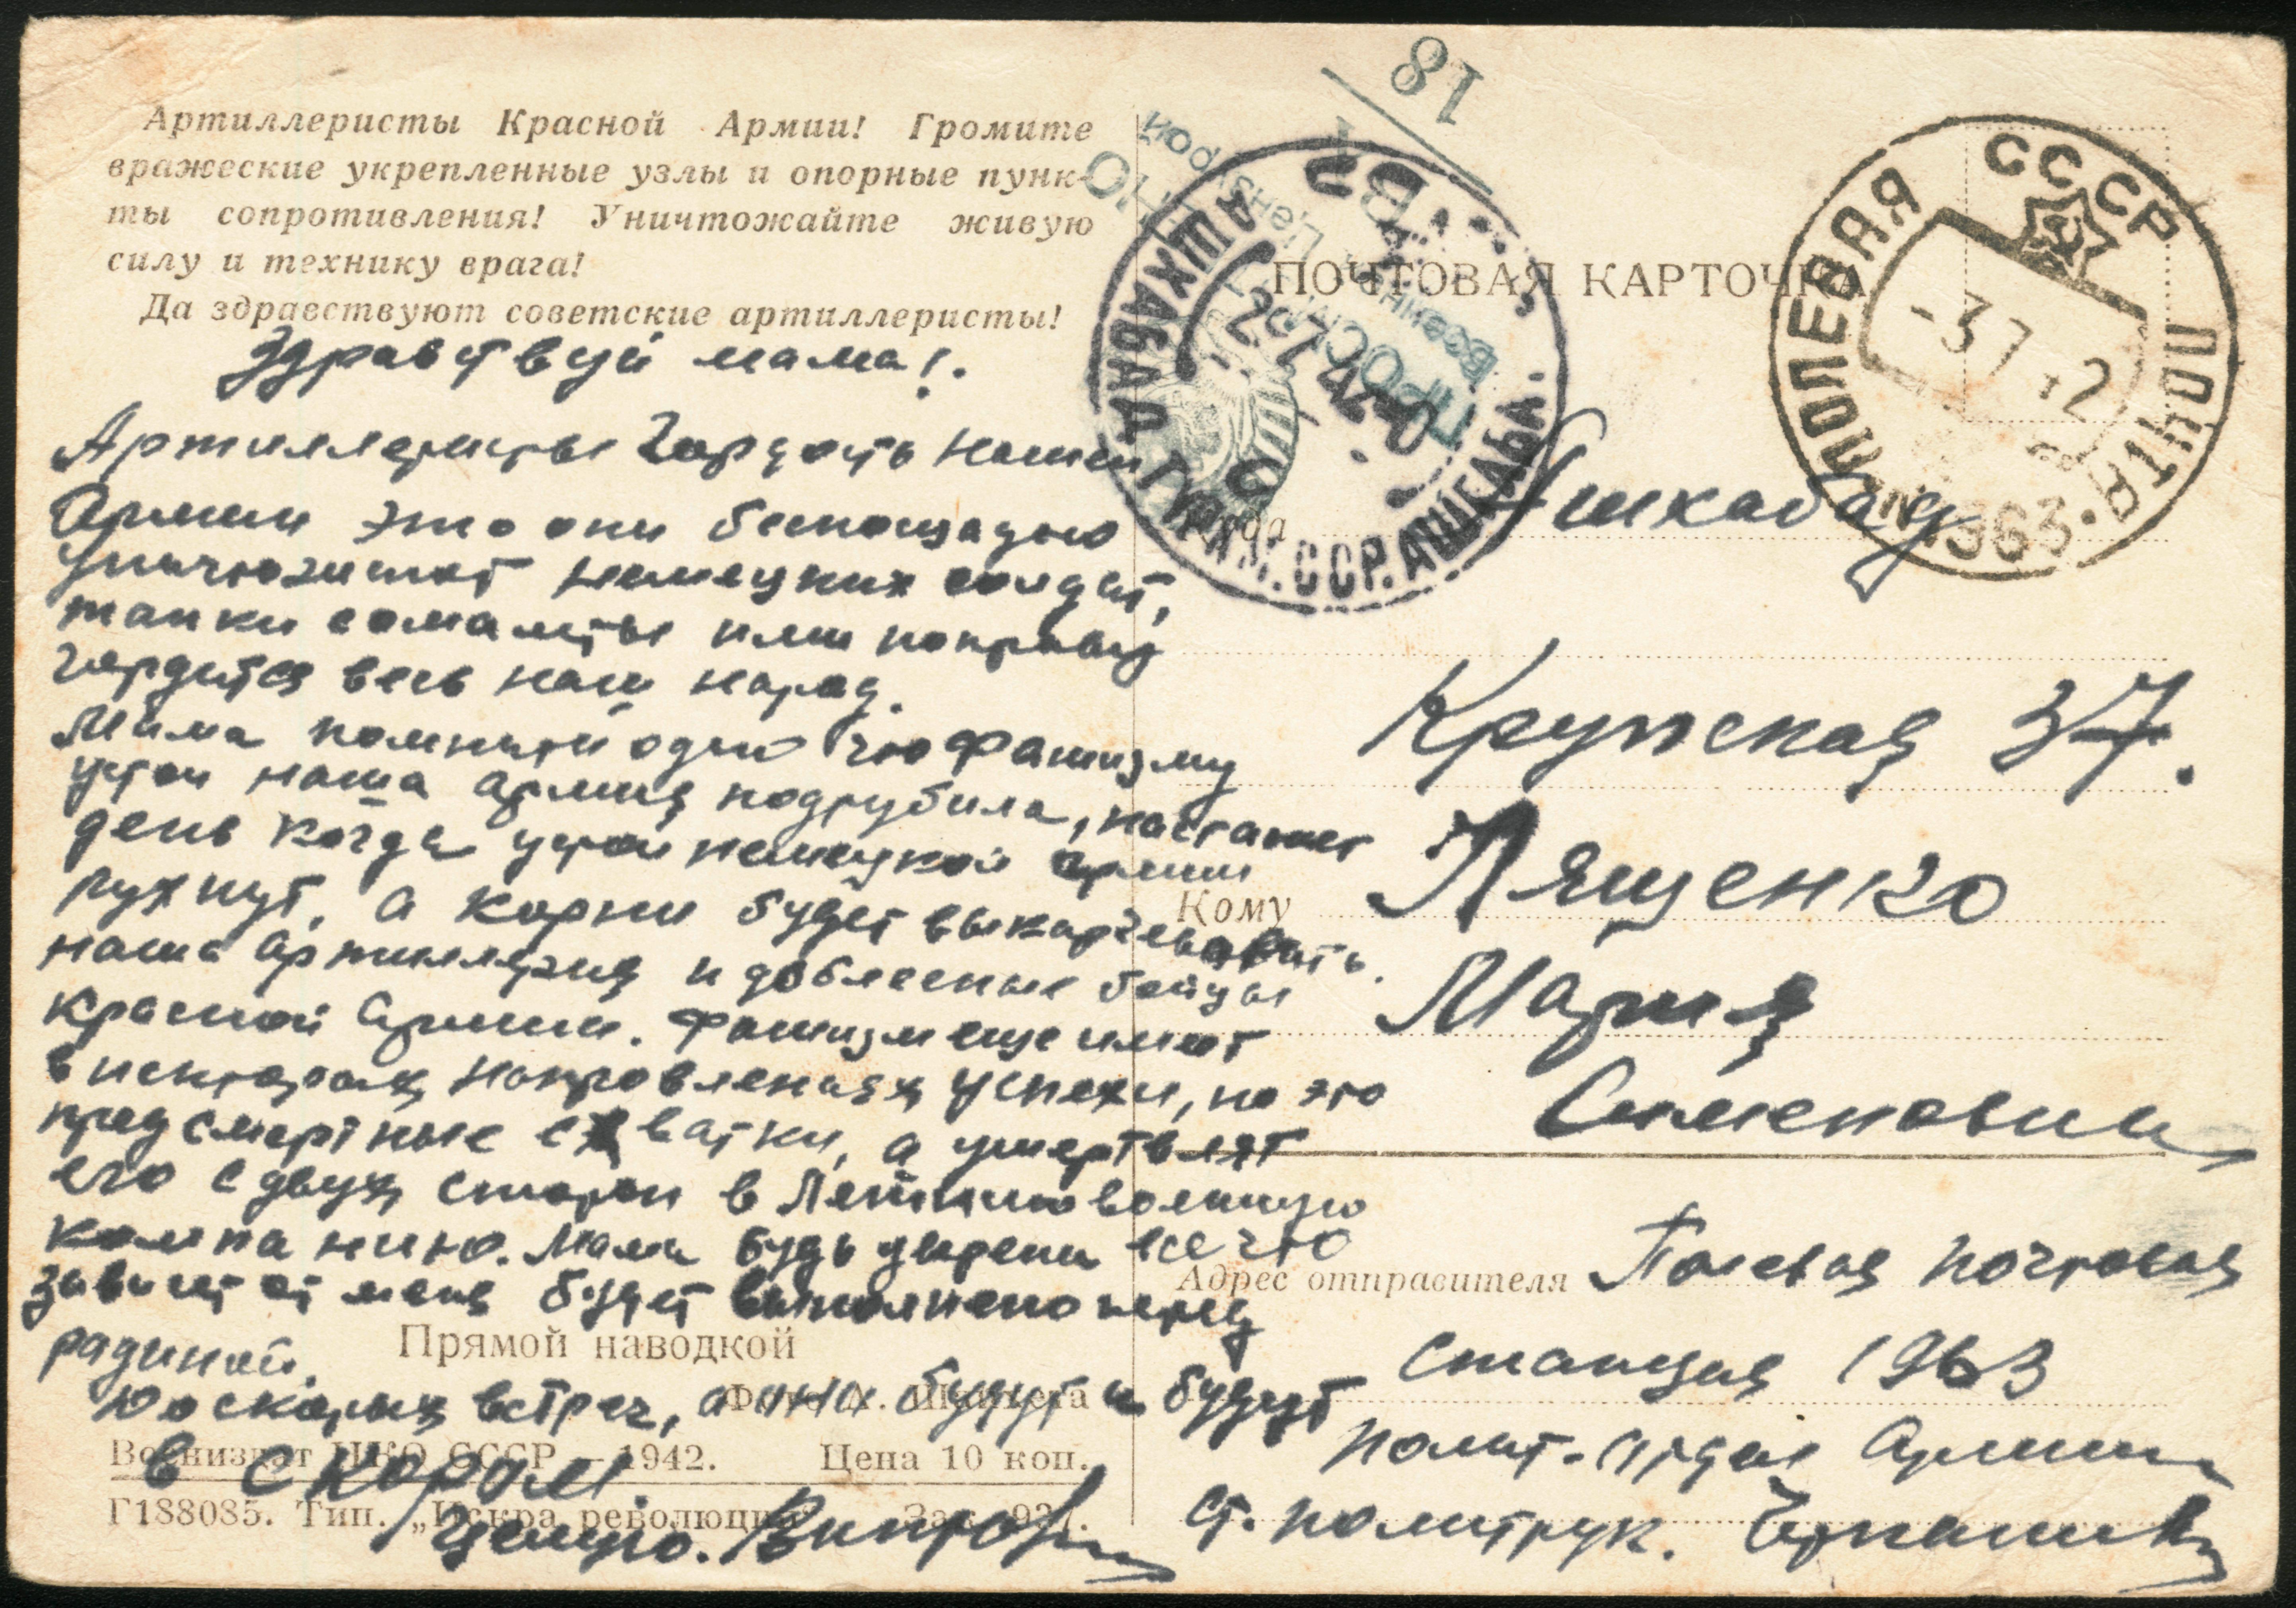 Артиллеристы Красной Армии! Громите
вражеские укрепленные узлы и опорные пунк-
ты сопротивления! Уничтожайте живую
силу и технику врага!
Да здравствуют советские артиллеристы!
Здравствуй мама!.
Артиллеристы гордость нашей
Армии это они беспощадно
уничтожают немецких солдат,
танки самалеты ими поправу
гордится весь наш народ.
Мама помнитй одно что фашизму
устои наша армия подрубила, настанет
день когда устои немецкой армии
рухнут, а корни будет выкарчевовать
наша артиллерия и доблесные бойцы
красной Армии. Фашизм еще имеет
в некторых направлениях успехи, но это
предсмертные схватки, а умертвлят
его с двух сторон в Летнию военную
компанию. Мама будь уверена все что
зависит от меня будет выполнено перед
радиной.
До скорых встреч, а они будут и будут
в скором.
Целую. Виктор
Прямой наводкой
Фото
Воениздат НКО СССР — 1942. Цена 10 коп.
Г188085. Тип. „Искра революции“ Зак. 937.
ПОЧТОВАЯ КАРТОЧКА
18
ПРОСМОТРЕНО
Военной Цензурой
АШХАБАД ТУРКМ. ССР. АШХАБАД.
СССР
ПОЛЕВАЯ ПОЧТА
-3 7 42
№ 1963
Куда Ашхабад
Крупская 37.
Кому Лященко
Мария
Сименовна
Адрес отправителя Полевая почтовая
станция 1963
полит-отдел Армии
ст. политрук.